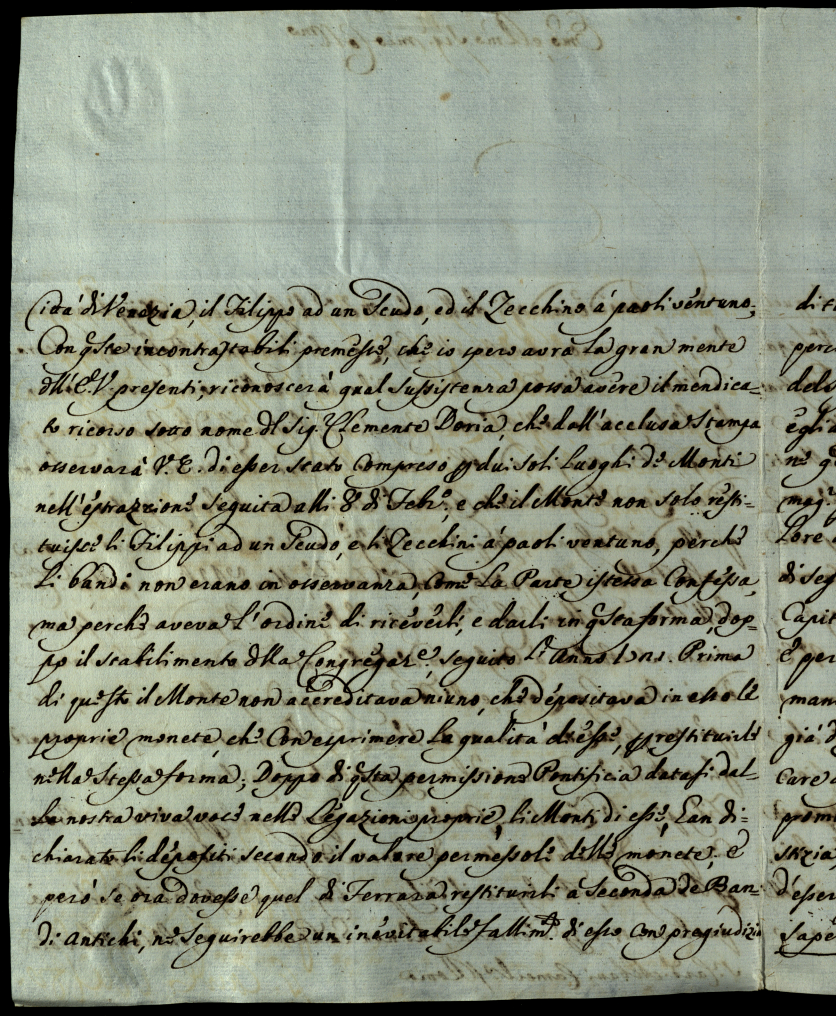 cità di Venezia, il Filippo ad un Scudo, ed il Zecchino à paoli ventuno.
Con qste incontrastabili premesse, che io spero avrà la gran mente
dll'E.V. presenti, riconoscerà qual sussistenza possa avere il mendica-
to ricorso sotto nome dl Sig.r Clemente Doria, che dall'acclusa Stampa
osservarà V.E. di esser stato Compreso p dui soli Luoghi de Monti
nell'estrazzione Seguita alli 8 di Febr.o, e che il Monte non solo resti-
tuisce li Filippi ad un Scudo, e li Zecchini à paoli ventuno, perchè
Li bandi non erano in osservanza, Come La Parte istessa Confessa,
ma perchè aveva l'ordine di riceverli, e darli in qsta forma, dop-
po il stabilimento dlla Congregaz.e, seguito l'Anno
. Prima
di questo il Monte non accreditava niuno, che depositava in esso le
proprie monete, che Con esprimere la qualità d'esse, p restituirle
nella Stessa forma; Doppo di qsta permissione Pontificia datasi dal-
La nostra viva voce nelle Legazioni proprie, li Monti di esse, Ean di-
chiarato li depositi secondo il valore permessole delle monete, e
però se ora dovesse quel di Ferrara restituirli a Seconda de Ban-
di Antichi, ne Seguirebbe un inevitabile fallim.to di esso Con pregiudizio
di
perc
dels
egli
ne q
mag.
Lore
di seg
Capit
È per
man
già d
care
prom
stizia
d'esser
Sape